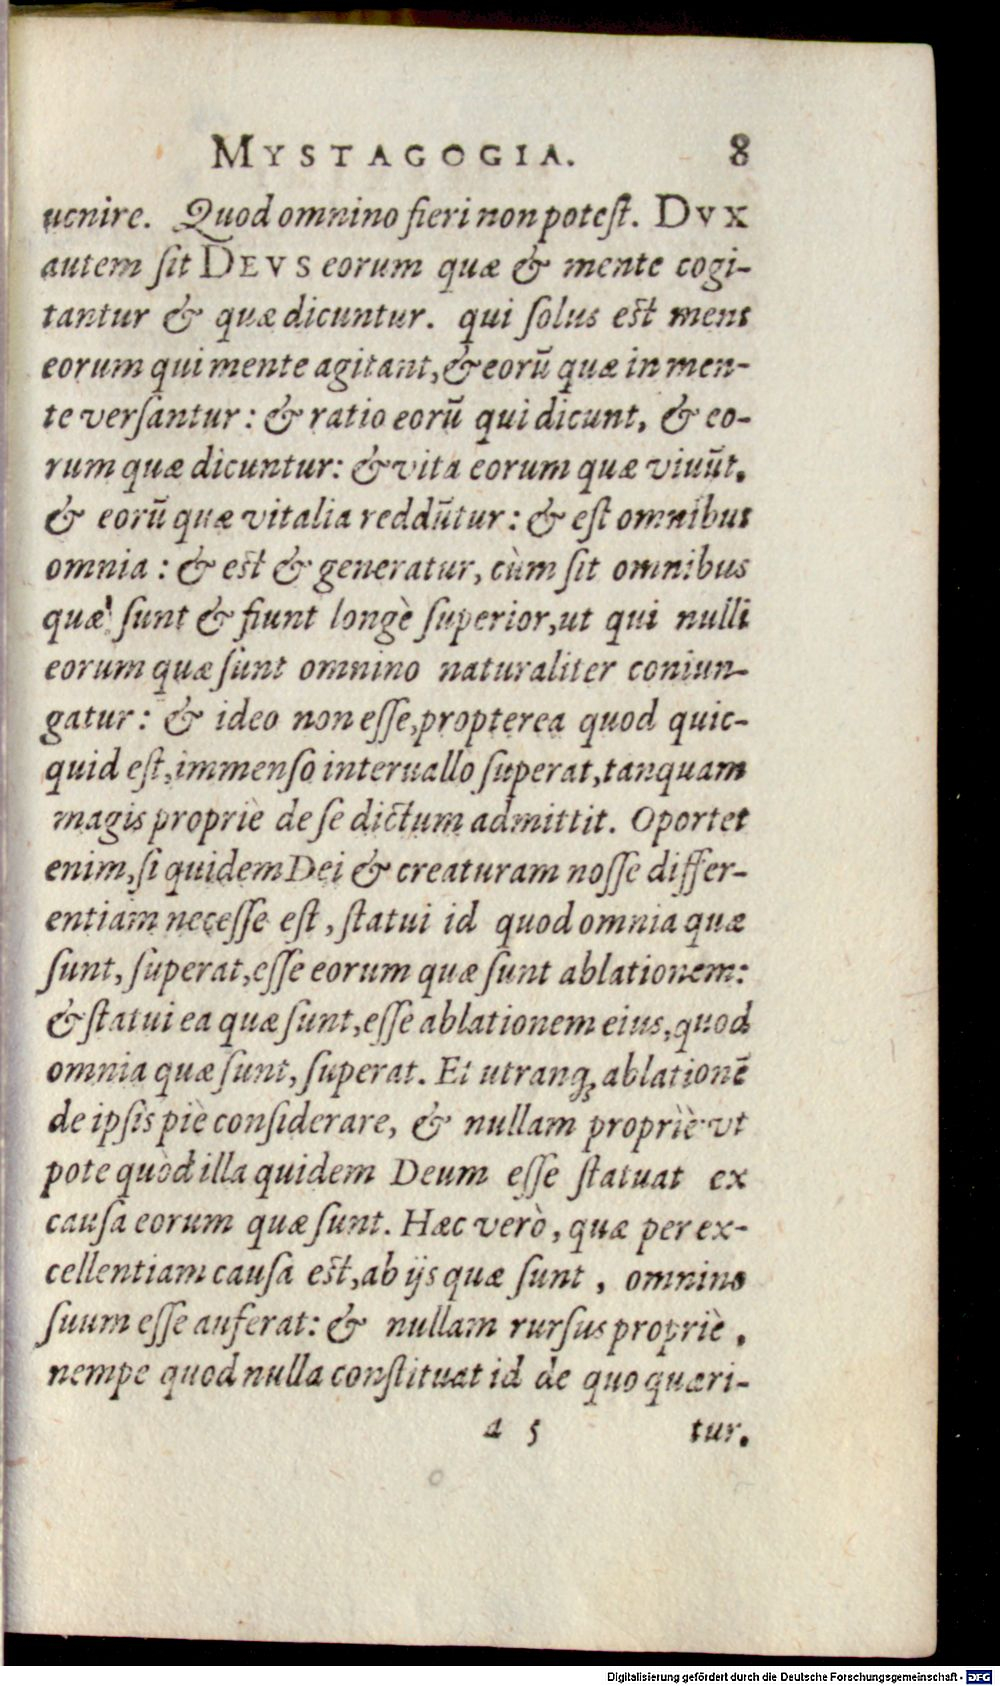 MYSTAGOGIA. 8
uenire. Quod omnino fieri non potest. DVX
autem sit DEVS eorum quæ & mente cogi-
tantur & quæ dicuntur. qui solus est mens
eorum qui mente agitant, & eorū quæ in men-
te versantur: & ratio eorū qui dicunt, & eo-
rum quæ dicuntur: & vita eorum quæ viuūt.
& eorū quæ vitalia reddūtur: & est omnibus
omnia: & est & generatur, cùm sit omnibus
quæ sunt & fiunt longè superior, ut qui nulli
eorum quæ sunt omnino naturaliter coniun-
gatur: & ideo non esse, propterea quod quic-
quid est, immenso interuallo superat, tanquam
magis propriè de se dictum admittit. Oportet
enim, si quidem Dei & creaturam nosse differ-
entiam necesse est, statui id quod omnia quæ
sunt, superat, esse eorum quæ sunt ablationem:
& statui ea quæ sunt, esse ablationem eius, quod
omnia quæ sunt, superat. Et utranq; ablationē
de ipsis piè considerare, & nullam propriè vt
pote quòd illa quidem Deum esse statuat ex
causa eorum quæ sunt. Hæc verò, quæ per ex-
cellentiam causa est, ab ijs quæ sunt, omnino
suum esse auferat: & nullam rursus propriè,
nempe quod nulla constituat id de quo quæri-
a 5 tur.
Digitalisierung gefördert durch die Deutsche Forschungsgemeinschaft - DFG